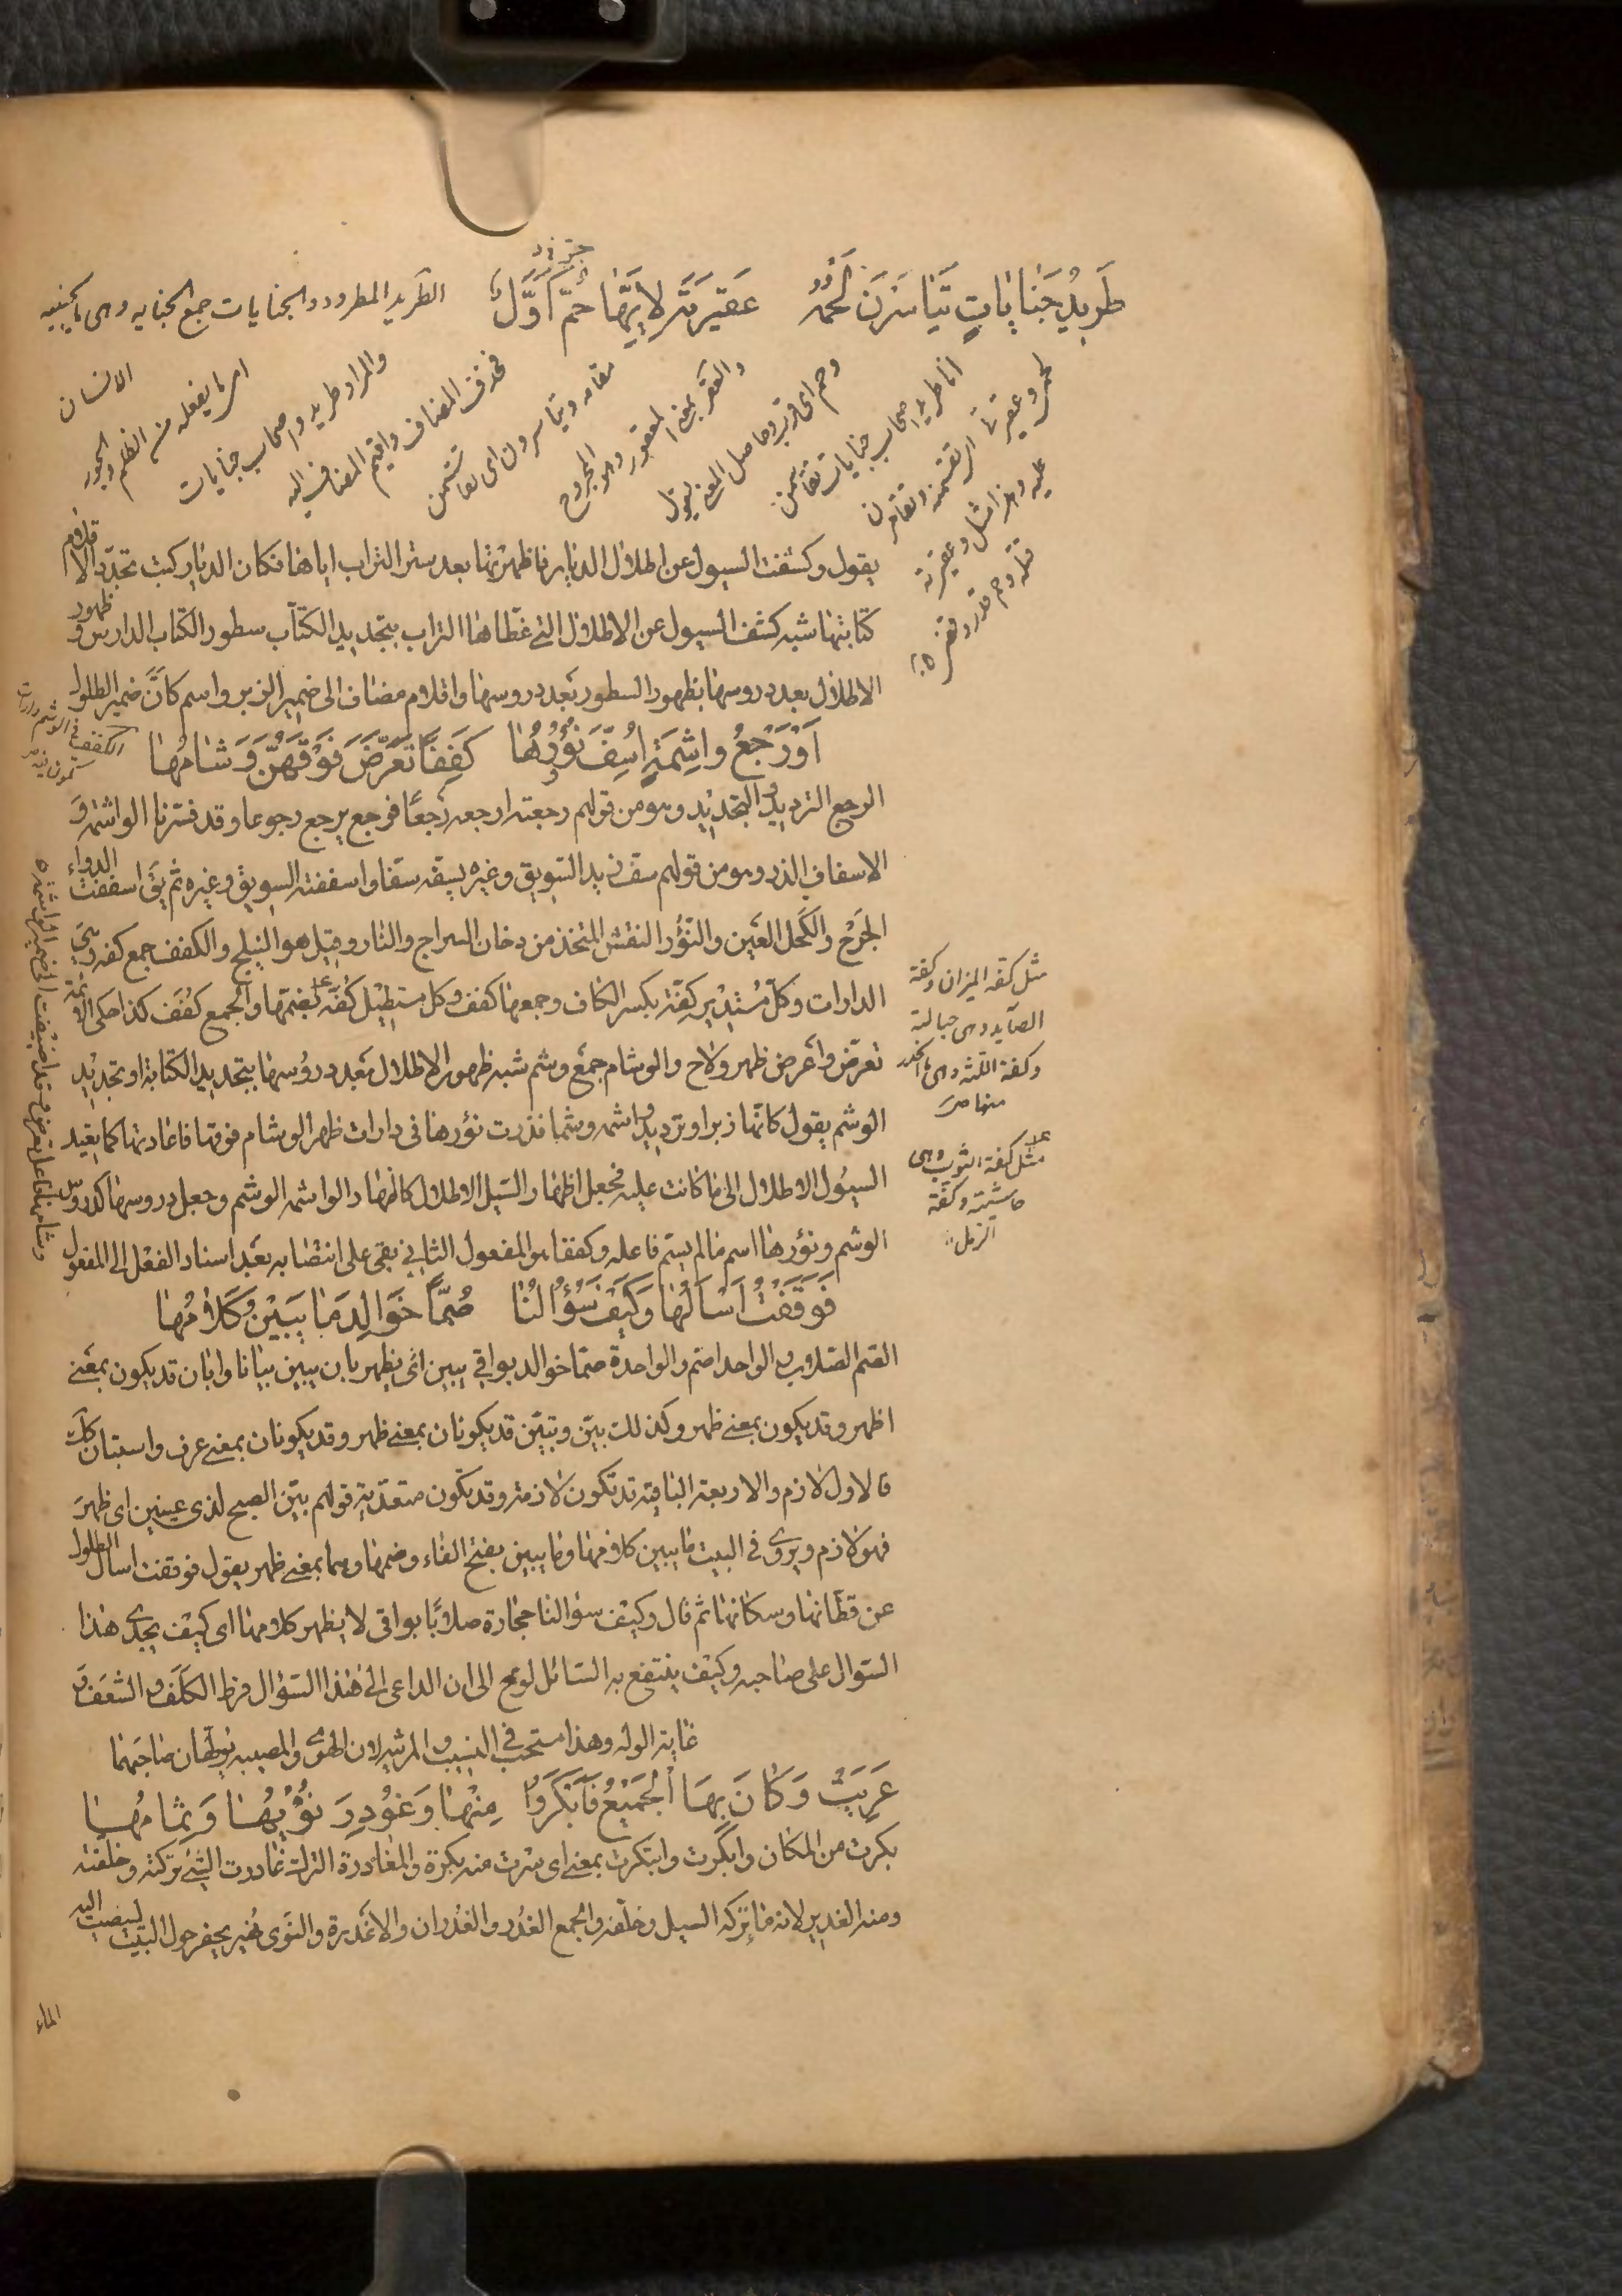 طَرِيدُ جِنَايَاتٍ تَيَاسَرْنَ لَحْمَهُ عَقِيرَتُهُ لِأَيِّهَا حُمَّ أَوَّلُ الطريد المطرود والجنايات جمع الجنايه وهى ما يجنيه
الانسان
اى ما يفعله من الظلم والجور
والمراد طريد واصحاب جنايات
فحذف المضاف واقيم المضاف اليه
مقامه وتياسرون اى تقاسمن
والعقير بمعنى المعقور وهو المجروح
وحم اى قرب وحاصل المعنى يقول
انا طريد اصحاب جنايات تقاسمن
لحمى وعقيرتى
عليه وهذا مثل وعقيرته
يقول وكشفت السيول عن اطلال الديار فاظهرتها بعد ستر التراب اياها فكان الديار كتب تجدد الاقلام
كتابتها شبه كشف السيول عن الاطلال التي غطاها التراب بتجديد الكتاب سطور الكتاب الدارس وظهور
الاطلال بعد دروسها بظهور السطور بعد دروسها واقلام مضاف الى ضمير الزبر واسم كانّ ضمير الطلول
اَوْ رَجْعُ واشِمَةٍ اُسِفَّ نَؤُرُهُا كَفِفًا تَعَرَّضَ فَوْقَهُنَّ وَشَامُها
الرجع الترديد والتجديد وهو من قولهم رجعته ارجعه رَجعًا فرجع يرجع رجوعا وقد فسّرنا الواشمة و
الاسفاف الذر وهو من قولهم سف زيد السّويق وغيره يسفّه سفّا واسففته السويق وغيره ثم يق اسففت الدواء
الجَرْح والكحل العَين والنَّؤُر النقش المتخذ من دخان السراج والنار وقيل هو النيلج والكفف جمع كفه وهي
الدارات وكلّ مُسْتدِير كِفّة بكسر الكاف وجمعها كفف وكل مستطيل كُفّة بضمّها والجمع كُفَف كذا حكى الائمة
تعرّض وأعرض ظهر ولاح والوشام جمع وشم شبه ظهور الاطلال بعد دروُسها بتجديد الكتابة او تجديد
الوشم يقول كانّها زبر او ترديد واشمه وشما فذرت نؤرها فى دارات ظهر الوشام فوقها فاعادتها كما يعيد
السيُول الاطلال الى ما كانت عليه فجعل اظهار السّيل الاطلال كاظهار الواشمه الوشم وجعل دروسها كدروس
الوشم ونؤرها اسم مالم يسّم فاعله وكففا هو المفعول الثاني بقى على انتصابه بعد اسناد الفعل الى المفعول
فَوَقَفْتُ اَسْاَلُها وَكَيْفَ سُؤالُنا صُمًّا خَوالِدَ مَا يَبِيْنُ كَلامُها
الصّم الصّلاب والواحد اصّم والواحدة صمّا خوالد بواقي يبين اى يظهر بان يبين بيانا وابان قد يكون بمعنى
اظهر وقد يكون بمعنى ظهر وكذلك بيّن وتبيّن قد يكونان بمعنى ظهر وقد يكونان بمعنى عرف واستبان كك
فالاول لازم والاربعة الباقية قد تكون لازمة وقد تكون متعدّية قولهم بيّن الصبح لذى عينين اى ظهرَ
فهو لازم ويروى فى البيت ما يبين كلامها وما يبين بفتح الفاء وضمها وهما بمعنى ظهر يقول فوقفت اسال الطلول
عن قطّانها وسكانها ثم قال وكيف سؤالنا حجارة صلابًا بواقى لا يظهر كلامها اى كيف يجدى هذا
السّوال على صاحبه وكيف ينتفع به السّائل لوّح الى ان الداعى الى هذا السّؤال فرط الكَلَف والشعَف و
غاية الوله وهذا مستحبّ فى النسيب والمرثيه لان الهوىٰ والمصيبه يولّهان صاحبَهما
عَرِيَتْ وَكَانَ بِهَا الْجَمِيْعُ فَاَبْكَرُوْا مِنْها وَغُوْدِرَ نُؤْيُها وَثِمامُها
بكرت من المكان وابكرت وابتكرت بمعنى اى سرت منه بكرة والمغادرة الترك غادرت الشئ تركته وخلفته
ومنه الغدير لانه ما تركه السيل وخلّفه والجمع الغُدر والغُدران والاغدرة والنؤى نهير يحفر حول البيت لينصب اليه
الماء
مثل كفه الميزان وكفة
الصايد وهى حبالته
وكفة اللثه وهى ما انحدر
منها ص
مثل كفة الثوب وهى
حاشيته وكفة
الرمل